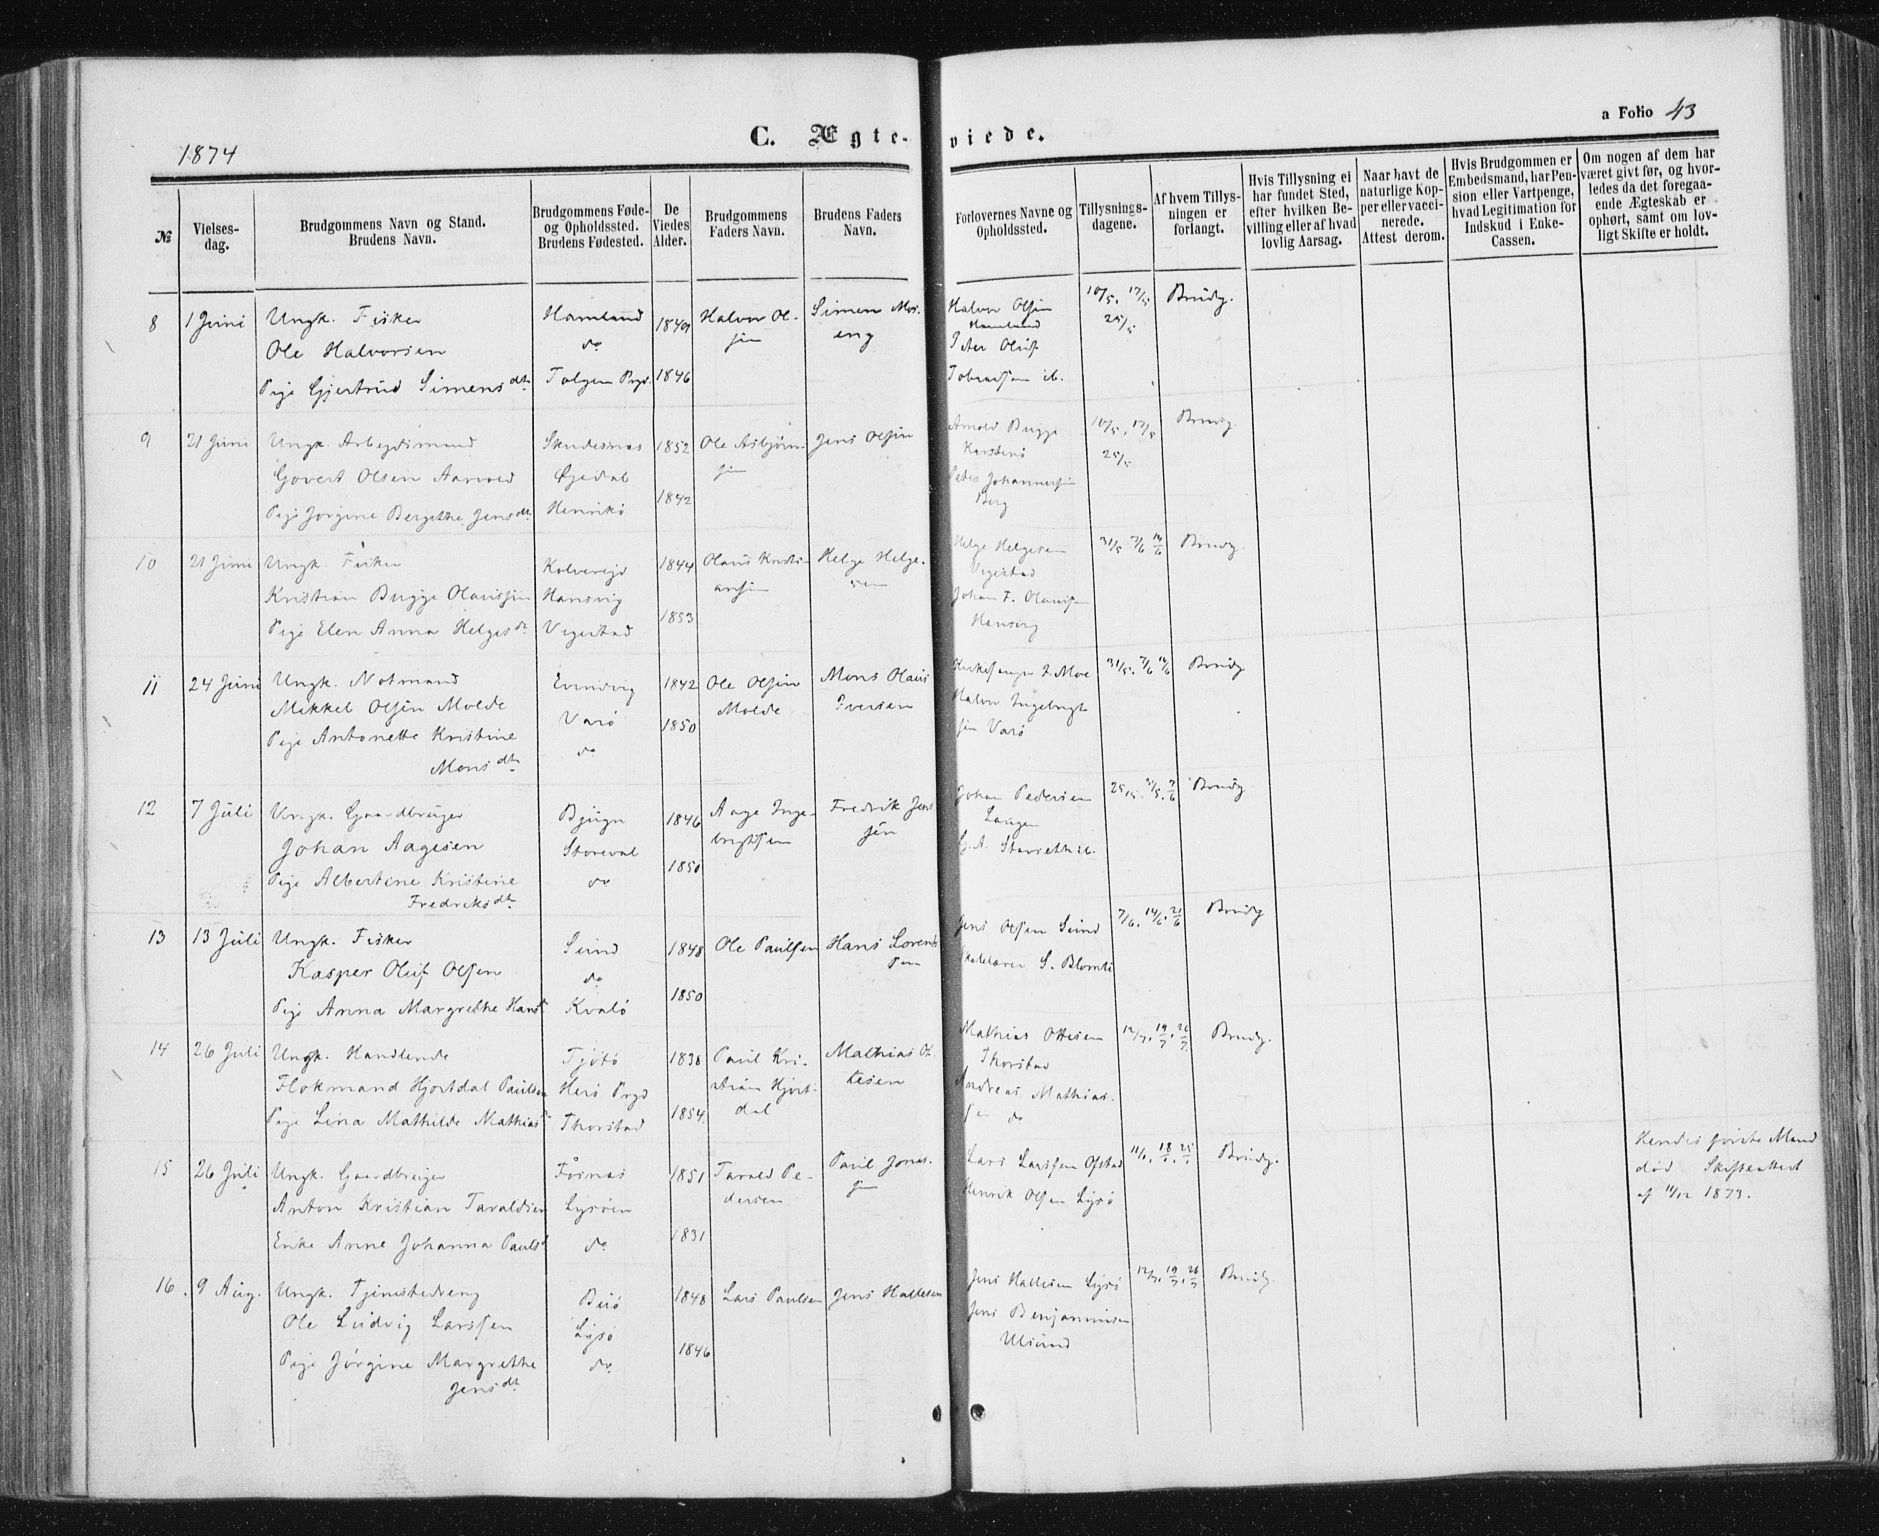 1874
C. Ægte-viede.
a Folio 43
№
Vielses-
dag.
Brudgommens Navn og Stand.
Brudens Navn.
Brudgommens Føde-
og Opholdssted.
Brudens Fødested.
De
Viedes
Alder.
Brudgommens
Faders Navn.
Brudens Faders
Navn.
Forlovernes Navne og
Opholdssted.
Tillysnings-
dagene.
Af hvem Tillys-
ningen er
forlangt.
Hvis Tillysning ei
har fundet Sted,
efter hvilken Be-
villing eller af hvad
lovlig Aarsag.
Naar havt de
naturlige Kop-
per eller vacci-
nerede.
Attest derom.
Hvis Brudgommen er
Embedsmand, har Pen-
sion eller Vartpenge,
hvad Legitimation for
Indskud i Enke-
Cassen.
Om nogen af dem har
været givt før, og hvor-
ledes da det foregaa-
ende Ægteskab er
ophørt, samt om lov-
ligt Skifte er holdt.
8
1 Juni
Ungk. Fisker
Ole Halvorsen
Pige Gjertrud Simens dt.
Hamland
do
Tolgen Prgd.
1849
1846
Halvor Ol-
sen
Simen Mos-
eng
Halvor Olsen
Hamland
Peter Oluf
ib.
10/5. 17/5
25/5
Brudg.
9
21 Juni
Ungk. Arbeidsmand
Govert Olsen Aarvold
Pige Jørgine Bergithe Jens dt.
Skudesnæs
Øjedal
Henrikø
1852
1842
Ole Asbjørn-
sen
Jens Olsen
Arnold Bugge
Karstenø
Peter Johannessen
Berg
10/5. 17/5
25/5
Brudg.
10
21 Juni
Ungk. Fisker
Kristian Bugge Olaussen
Pige Elen Anna Helges dt.
Kolvereid
Hansvig
Vegestad
1844
1853
Olaus Kristi-
ansen
Helge Helge-
sen
Helge Helgesen
Vegestad
Johan F. Olaussen
Hansvig
31/5 7/6 14/6
Brudg.
11
24 Juni
Ungk. Notmand
Mikkel Olsen Molde
Pige Antonette Kristine
Mons dt.
Evindvig
Varø
do
1842
1850
Ole Olsen
Molde
Mons Olaus
Iversen
Kirkesanger Moe
Halvor Ingebrigt
sen Varø
31/5. 7/6 14/6
Brudg
12
7 Juli
Ungk. Gaardbruger
Johan Aagesen
Pige Albertine Kristine
Fredriks dt.
Bjugn
Storeval
do
1846
1850
Aage Inge-
brigtsen
Fredrik Jens
sen
Johan Pedersen
Laugen
25/5. 31/5. 7/6
Brudg
13
13 Juli
Ungk. Fisker
Kasper Oluf Olsen
Pige Anna Margrethe Hans d
Sund
do
Kvalø
1848
1850
Ole Paulsen
Hans Lorents
sen
Jens Olsen Sund
7/6. 14/6. 21/6
Brudg
14
26 Juli
Ungk. Handlende
Flokmand Hjortdal Paulsen
Pige Lina Mathilde Mathias d
Tjøtø
Herø Prgd
Thorstad
1838
1854
Paul Kri-
stian Hjort-
dal
Mathias Ot-
tesen
Mathias Ottesen
Thorstad
Andreas Mathias-
sen do
12/7. 19/7. 26/7.
Brudg.
15
26 Juli
Ungk. Gaardbruger
Anton Kristian Taraldsen
Enke Anne Johanna Pauls d
Fosnæs
Lysøen
do
1851
1831
Tarald Pe-
dersen
Paul Jonas-
sen
Lars Larssen Ofstad
Henrik Olsen Lysø
Brudg.
Hendes første Mand
død Skifteattest
af 11/12 1873.
16.
9 Aug.
Ungk. Tjenestedreng
Ole Ludvig Larssen
Pige Jørgine Margrethe
Jens dt.
Buø
Lysø
do
1848
1846
Lars Paulsen
Jens Hallesen
Jens Hallesen Lysø
Jens Benjaminsen
Ulsund
12/7. 19/7. 26/7
Brudg.